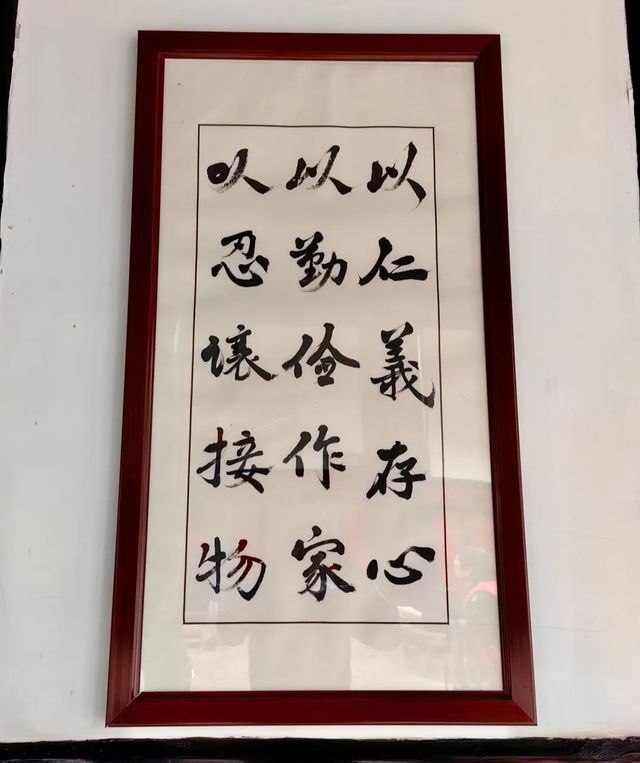 以仁義存心
以勤儉作家
以忍讓接物